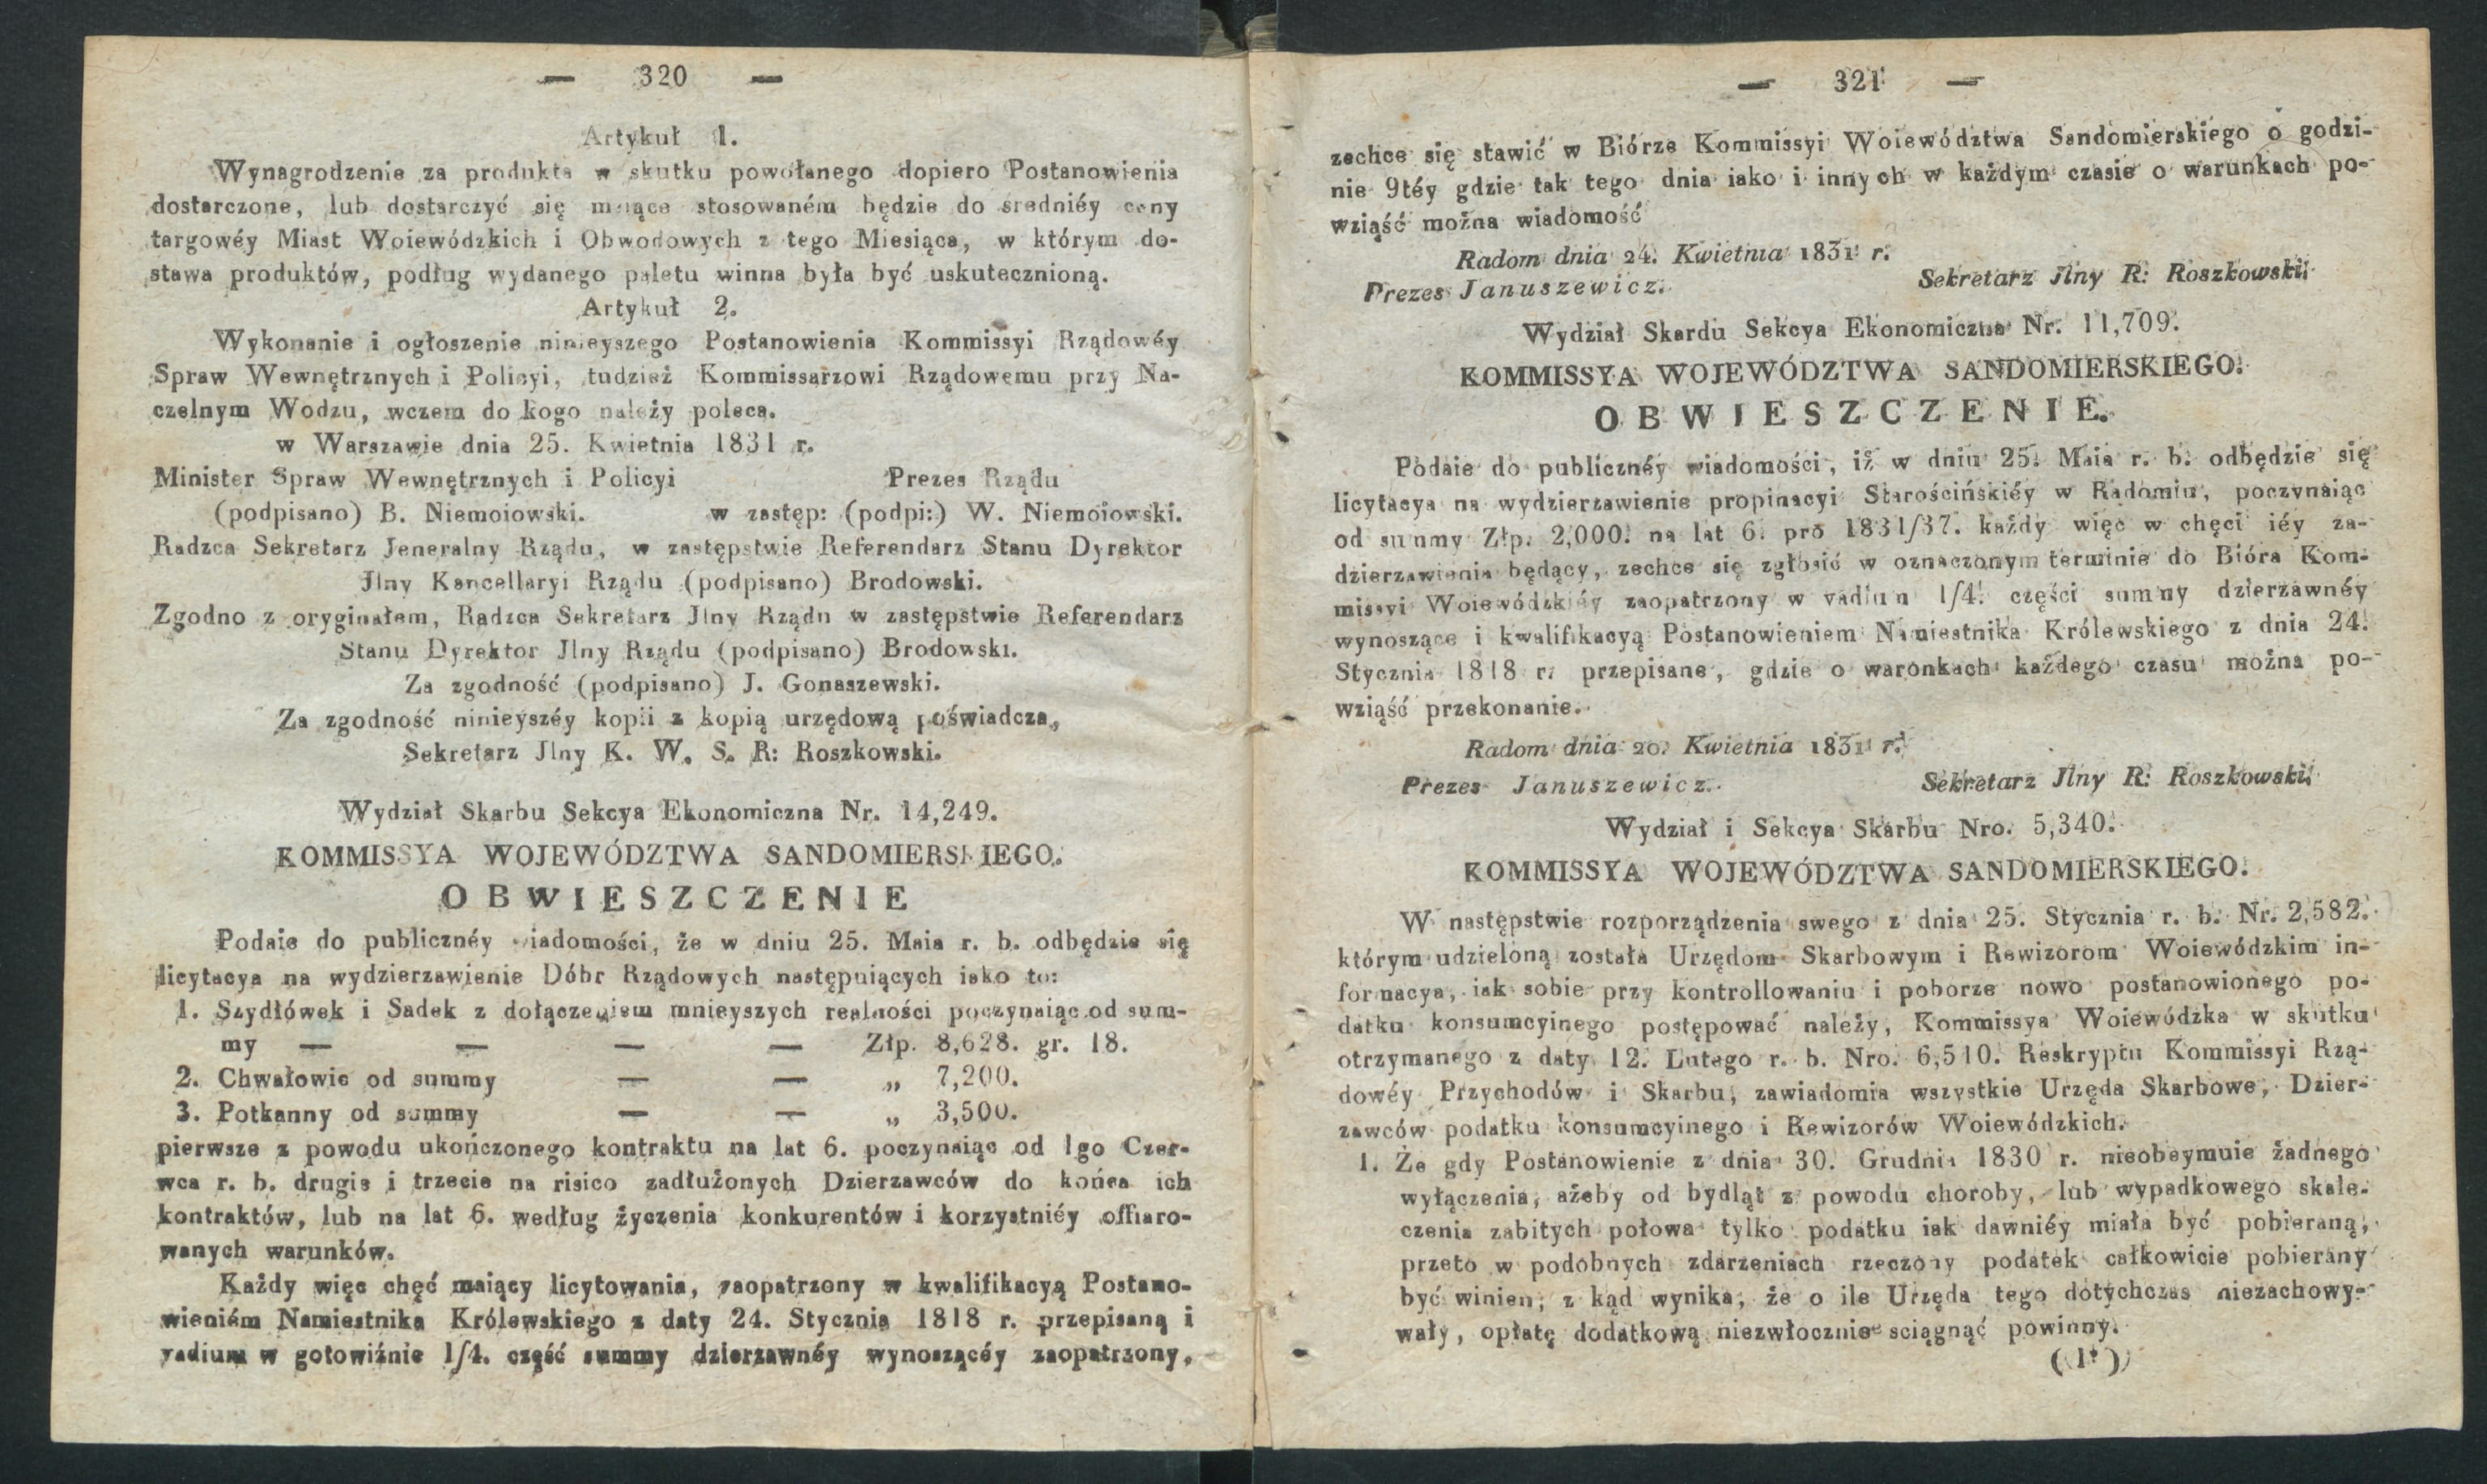 — 320 —
Artykuł 1.
Wynagrodzenie za produkta w skutku powołanego dopiero Postanowienia
dostarczone, lub dostarczyć się maiące stosowaném będzie do sredniéy ceny
targowéy Miast Woiewódzkich i Obwodowych z tego Miesiąca, w którym do-
stawa produktów, podług wydanego paletu winna była być uskutecznioną.
Artykuł 2.
Wykonanie i ogłoszenie ninieyszego Postanowienia Kommissyi Rządowéy
Spraw Wewnętrznych i Policyi, tudzież Kommissarzowi Rządowemu przy Na-
czelnym Wodzu, wczem do kogo należy poleca.
w Warszawie dnia 25. Kwietnia 1831 r.
Minister Spraw Wewnętrznych i Policyi Prezes Rządu
(podpisano) B. Niemoiowski. w zastęp: (podpi:) W. Niemoiowski.
Radzca Sekretarz Jeneralny Rządu, w zastępstwie Referendarz Stanu Dyrektor
Jlny Kancellaryi Rządu (podpisano) Brodowski.
Zgodno z oryginałem, Radzca Sekretarz Jlny Rządu w zastępstwie Referendarz
Stanu Dyrektor Jlny Rządu (podpisano) Brodowski.
Za zgodność (podpisano) J. Gonaszewski.
Za zgodność ninieyszéy kopii z kopią urzędową poświadcza,
Sekretarz Jlny K. W. S. R: Roszkowski.
Wydział Skarbu Sekcya Ekonomiczna Nr. 14,249.
KOMMISSYA WOJEWÓDZTWA SANDOMIERSKIEGO.
OBWIESZCZENIE
Podaie do publicznéy wiadomości, że w dniu 25. Maia r. b. odbędzie się
licytacya na wydzierzawienie Dóbr Rządowych następuiących iako to:
1. Szydłówek i Sadek z dołączeniem mnieyszych realności poczynaiąc od sum-
my — — — — Złp. 8,628. gr. 18.
2. Chwałowic od summy — — „ 7,200.
3. Potkanny od summy — — „ 3,500.
pierwsze z powodu ukończonego kontraktu na lat 6. poczynaiąc od 1go Czer-
wca r. b. drugie i trzecie na risico zadłużonych Dzierzawców do końca ich
kontraktów, lub na lat 6. według życzenia konkurentów i korzystniéy offiaro-
wanych warunków.
Każdy więc chęć maiący licytowania, zaopatrzony w kwalifikacyą Postano-
wieniém Namiestnika Królewskiego z daty 24. Stycznia 1818 r. przepisaną i
vadium w gotowiźnie 1/4. część summy dzierzawnéy wynoszącéy zaopatrzony,
— 321 —
zechce się stawić w Biórze Kommissyi Woiewództwa Sandomierskiego o godzi-
nie 9téy gdzie tak tego dnia iako i innych w każdym czasie o warunkach po-
wziąść można wiadomość
Radom dnia 24. Kwietnia 1831 r.
Prezes Januszewicz. Sekretarz Jlny R: Roszkowski.
Wydział Skardu Sekcya Ekonomiczna Nr. 11,709.
KOMMISSYA WOJEWÓDZTWA SANDOMIERSKIEGO.
OBWIESZCZENIE.
Podaie do publicznéy wiadomości, iż w dniu 25. Maia r. b. odbędzie się
licytacya na wydzierzawienie propinacyi Starościńskiéy w Radomiu, poczynaiąc
od summy Złp. 2,000. na lat 6. pro 1831/37. każdy więc w chęci iéy za-
dzierzawienia będący, zechce się zgłosić w oznaczonym terminie do Bióra Kom-
missyi Woiewódzkiéy zaopatrzony w vadium 1/4. części summy dzierzawnéy
wynoszące i kwalifikacyą Postanowieniem Namiestnika Królewskiego z dnia 24.
Stycznia 1818 r. przepisane, gdzie o waronkach każdego czasu można po-
wziąść przekonanie.
Radom dnia 20. Kwietnia 1831 r.
Prezes Januszewicz. Sekretarz Jlny R: Roszkowski.
Wydział i Sekcya Skarbu Nro. 5,340.
KOMMISSYA WOJEWÓDZTWA SANDOMIERSKIEGO.
W następstwie rozporządzenia swego z dnia 25. Stycznia r. b. Nr. 2,582.
którym udzieloną została Urzędom Skarbowym i Rewizorom Woiewódzkim in-
formacya, iak sobie przy kontrollowaniu i poborze nowo postanowionego po-
datku konsumcyinego postępować należy, Kommissya Woiewódzka w skutku
otrzymanego z daty 12. Lutego r. b. Nro. 6,510. Reskryptu Kommissyi Rzą-
dowéy Przychodów i Skarbu, zawiadomia wszystkie Urzęda Skarbowe, Dzier-
zawców podatku konsumcyinego i Rewizorów Woiewódzkich.
1. Że gdy Postanowienie z dnia 30. Grudnia 1830 r. nieobeymuie żadnego
wyłączenia, ażeby od bydląt z powodu choroby, lub wypadkowego skale-
czenia zabitych połowa tylko podatku iak dawniéy miała być pobieraną,
przeto w podobnych zdarzeniach rzeczony podatek całkowicie pobierany
być winien, z kąd wynika, że o ile Urzęda tego dotychczas niezachowy-
wały, opłatę dodatkową niezwłocznie sciągnąć powinny.
(1*)